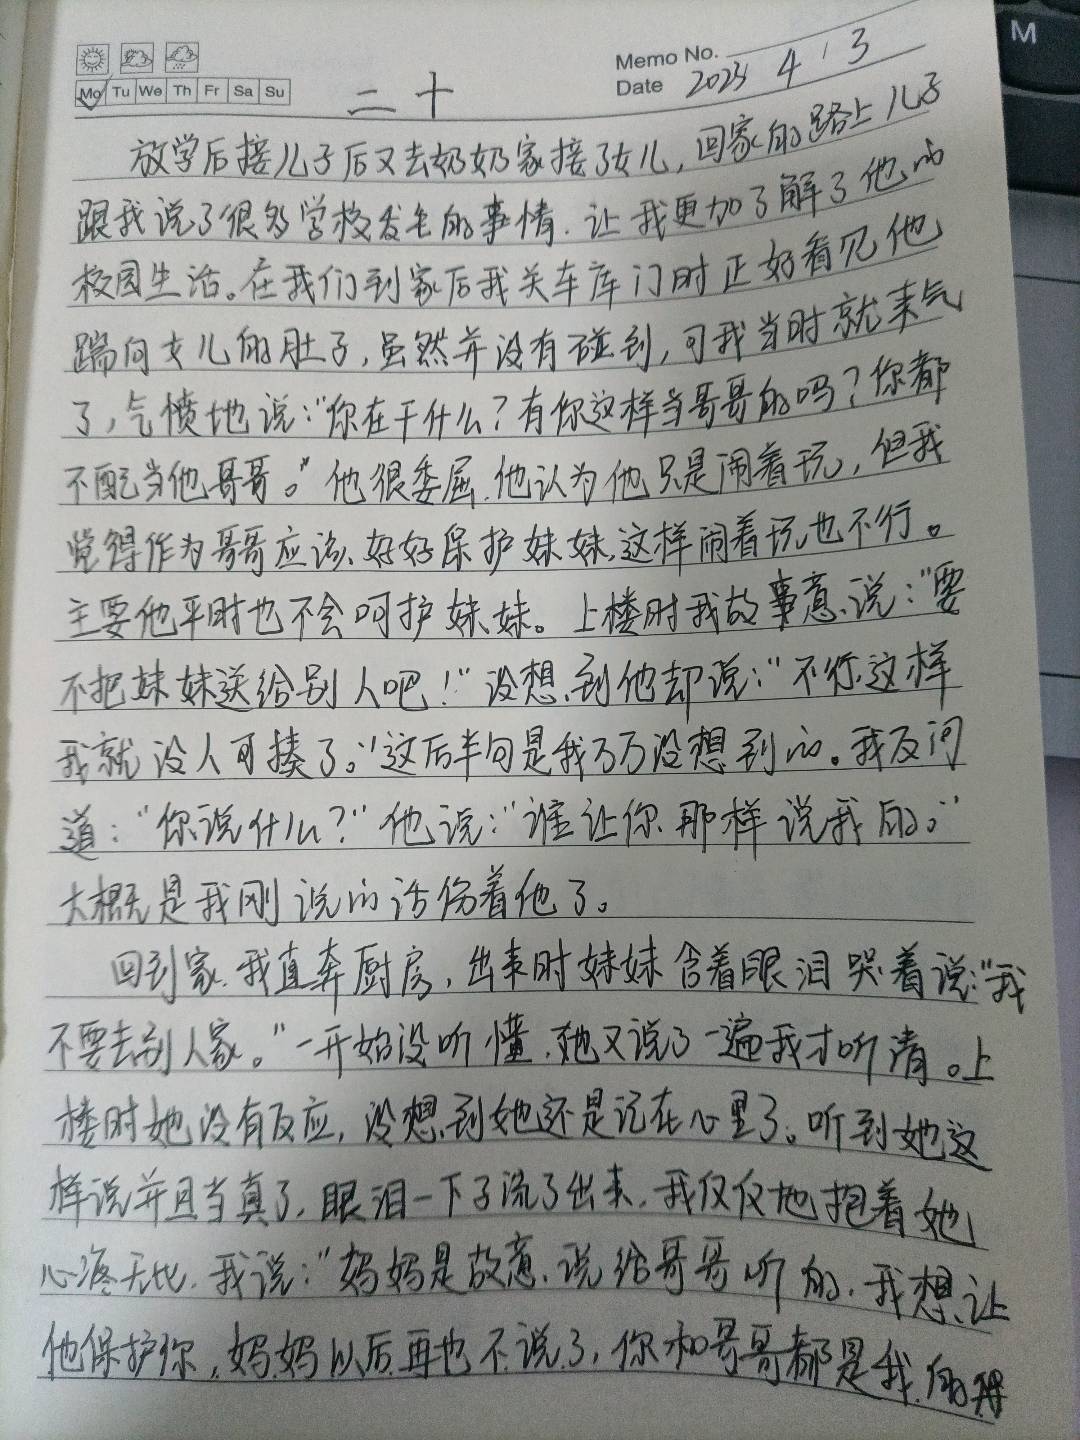 M
Memo No.
Mo Tu We Th Fr Sa Su
Date 2023 4 / 3
二十
放学后接儿子后又去奶奶家接了女儿，回家的路上儿子
跟我说了很多学校发生的事情.让我更加了解了他的
校园生活。在我们到家后我关车库门时正好看见他
踹向女儿的肚子，虽然并没有碰到，可我当时就来气
了，气愤地说："你在干什么？有你这样当哥哥的吗？你都
不配当他哥哥。"他很委屈.他认为他只是闹着玩，但我
觉得作为哥哥应该、好好保护妹妹.这样闹着玩也不行。
主要他平时也不会呵护妹妹。上楼时我故事意、说："要
不把妹妹送给别人吧！"没想到他却说："不行.这样
我就没人可揍了。"这后半句是我万万没想到的。我反问
道："你说什么？"他说："谁让你那样说我的。"
大概是我刚说的话伤着他了。
回到家.我直奔厨房，出来时妹妹含着眼泪哭着说："我
不要去别人家。"一开始没听懂.她又说了一遍我才听清。上
楼时她没有反应，没想到她还是记在心里了。听到她这
样说并且当真了，眼泪一下子流了出来.我仅仅地抱着她
心疼无比.我说："妈妈是故意、说给哥哥听的.我想让
他保护你，妈妈以后再也不说了，你和哥哥都是我的